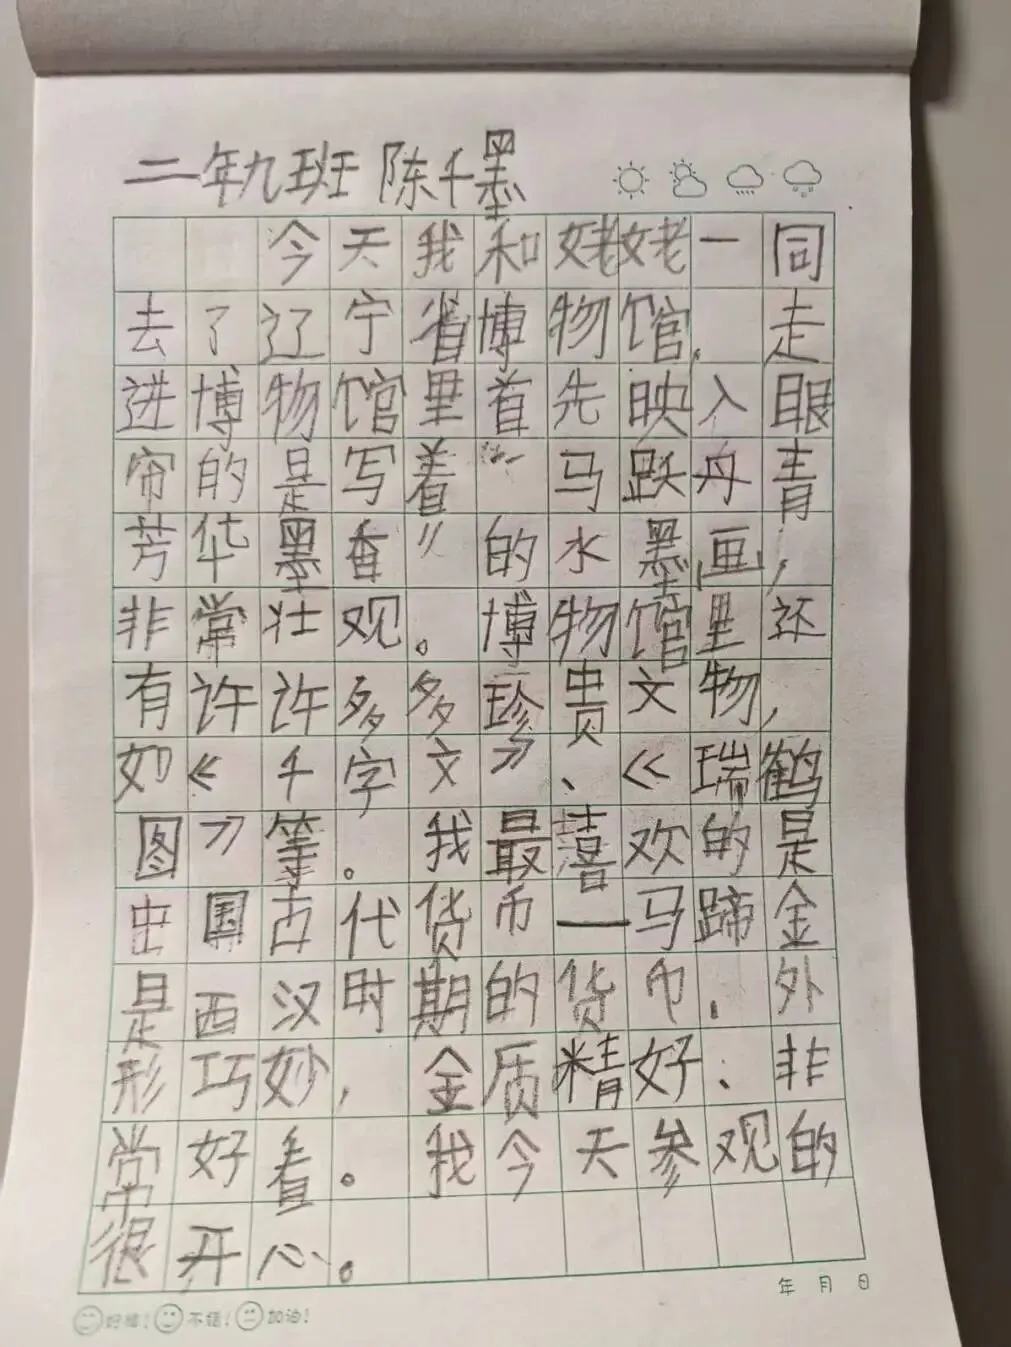 二年九班 陈千墨
今天我和姥姥一同
去了辽宁省博物馆. 走
进博物馆里首先映入眼
帘的是写着“马跃丹青
芳华墨香”的水墨画,
非常壮观。博物馆里还
有许许多多珍贵文物,
如《千字文》、《瑞鹤
图》等。我最喜欢的是
中国古代货币一马蹄金
是西汉时期的货币. 外
形巧妙, 金质精好、非
常好看。我今天参观的
很开心。
年 月 日
好棒! 不错! 加油!